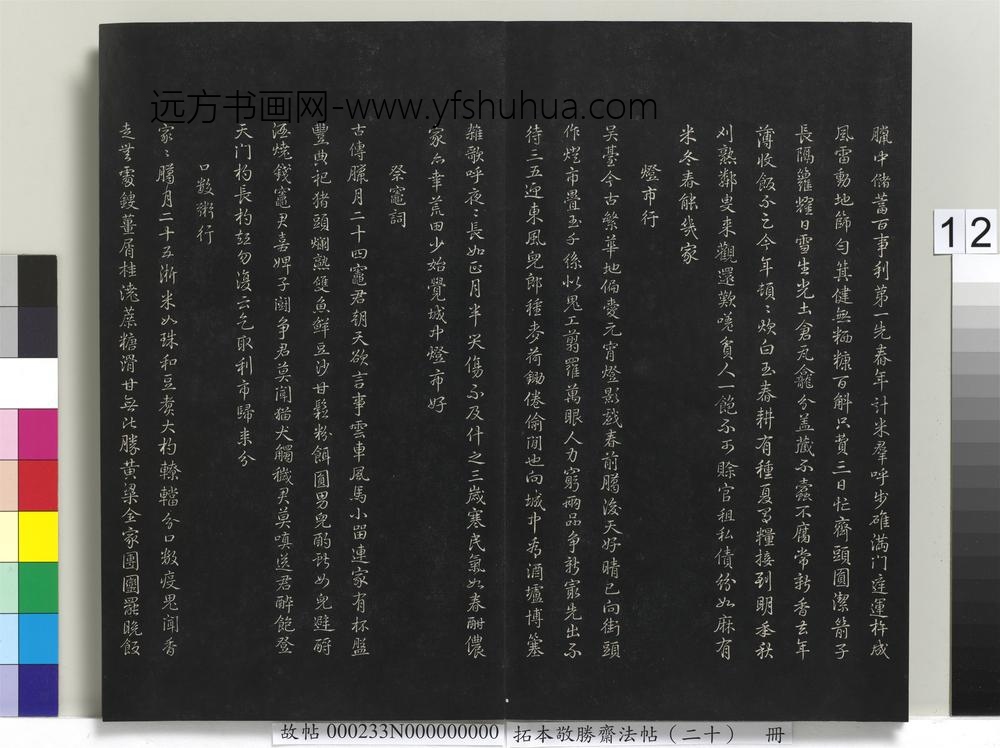 臘中儲蓄百事利第一先舂年計米羣呼步碓滿門庭運杵成
風雷動地篩勻箕健無粞糠百斛只費三日忙齊頭圓潔箭子
長隔籮耀日雪生光土倉瓦龕分蓋藏不蠹不腐常新香去年
薄收飯不足今年頓頓炊白玉春耕有種夏有糧接到明年秋
刈熟鄰叟來觀還歎嗟貧人一飽不可賖官租私債紛如麻有
米冬舂能幾家
燈市行
吳臺今古繁華地偏愛元宵燈影戲春前臘後天好晴已向街頭
作燈市疊玉千絲似鬼工剪羅萬眼人力窮兩品爭新最先出不
待三五迎東風兒郎種麥荷鋤倦偷閒也向城中看酒壚博簺
雜歌呼夜夜長如正月半災傷不及什之三歲寒民氣如春酣儂
家亦幸荒田少始覺城中燈市好
祭竈詞
古傳臘月二十四竈君朝天欲言事雲車風馬小留連家有杯盤
豐典祀猪頭爛熟雙魚鮮豆沙甘鬆粉餌圓男兒酌獻女兒避酹
酒燒錢竈君喜婢子鬭爭君莫聞猫犬觸穢君莫嗔送君醉飽登
天门杓長杓短勿復云乞取利市歸來分
口數粥行
家家臘月二十五淅米如珠和豆煑大杓轑鐺分口數疫鬼聞香
走無處鎪薑屑桂澆蔗糖滑甘無比勝黄粱全家團圞罷晚飯
远方书画网-www.yfshuhua.com
12
故帖 000233N000000000
拓本敬勝齋法帖（二十） 冊